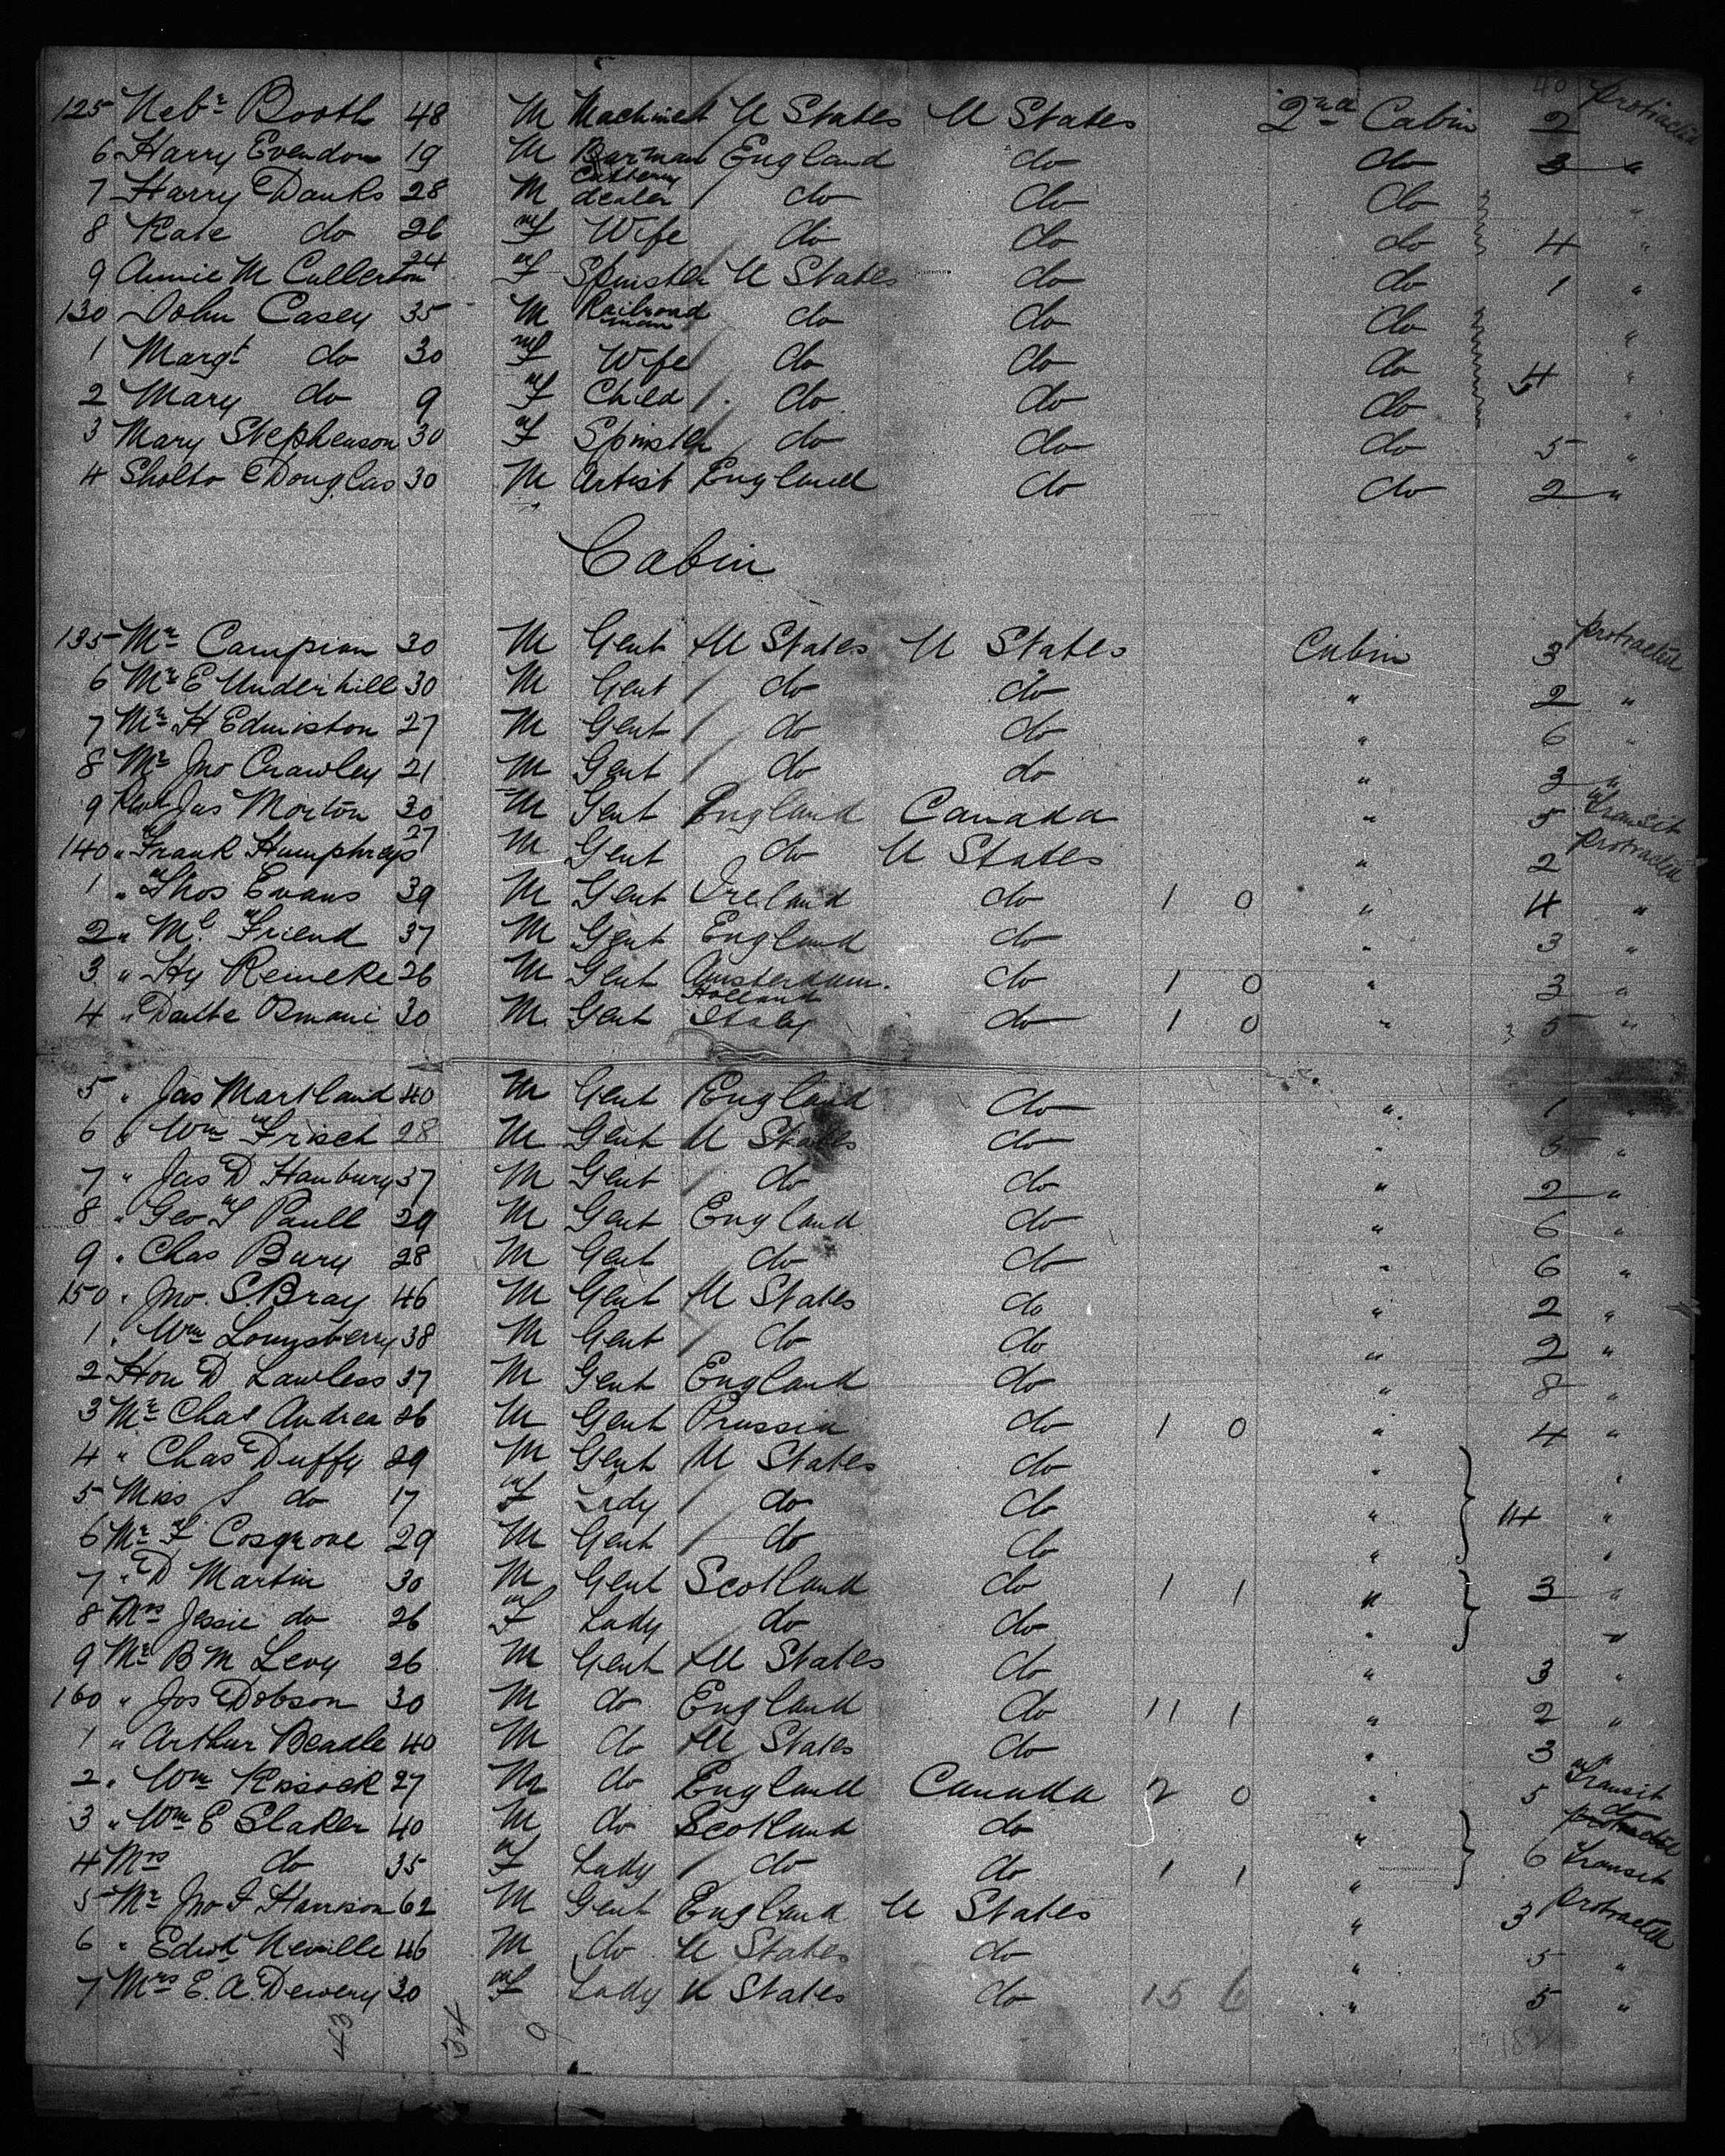 40 protracted
125 Nebr Booth 48 M Machinist U States U States 2nd Cabin 2
6 Harry Evendon 19 M Barman England do do 3 "
7 Harry Danks 28 M Cattery dealer do do do "
8 Kate do 26 F Wife do do do 4 "
9 Annie M Cullerton 24 F Spinster U States do do 1 "
130 John Casey 35 M Railroad man do do do "
1 Margt do 30 F Wife do do do 4 "
2 Mary do 9 F Child do do do "
3 Mary Stephenson 30 F Spinster do do do 5 "
4 Sholto Douglas 30 M Artist England do do 2 "
Cabin
135 Mr Campion 30 M Gent U States U States Cabin 3 protracted
6 Mr E Underhill 30 M Gent do do " 2 "
7 Mr H Edmiston 27 M Gent do do " 6 "
8 Mr Jno Crawley 21 M Gent do do " 3 "
9 Jas Morton 30 M Gent England Canada " 5 Transit
140 " Frank Humphreys 27 M Gent do U States " 2 protracted
1 " Thos Evans 39 M Gent Ireland do 1 0 " 4 "
2 " Mc Friend 37 M Gent England do " 3 "
3 " Hy Remeke 26 M Gent Amsterdam Holland do 1 0 " 3 "
4 " Dalte Osmani 30 M Gent Italy do 1 0 " 5 "
5 " Jas Martland 40 M Gent England do " 1 "
6 " Wm Frisch 28 M Gent U States do " 5 "
7 " Jas D Hanbury 37 M Gent do do " 2 "
8 " Geo S Paull 29 M Gent England do " 6 "
9 " Chas Bury 28 M Gent do do " 6 "
150 " Jno. S. Bray 46 M Gent U States do " 2 "
1 " Wm Lounsberry 38 M Gent do do " 2 "
2 Hon D Lawless 37 M Gent England do " 8 "
3 Mr Chas Andrea 26 M Gent Prussia do 1 0 " 4 "
4 " Chas Duffy 29 M Gent U States do " "
5 Miss S do 17 F Lady do do " 4 "
6 Mr F Cosgrove 29 M Gent do do " "
7 " D Martin 30 M Gent Scotland do 1 1 " 3 "
8 Mrs Jessie do 26 F Lady do do " "
9 Mr B M Levy 26 M Gent U States do " 3 "
160 " Jos Dobson 30 M do England do 11 1 " 2 "
1 " Arthur Beadle 40 M do U States do " 3 "
2 " Wm Kissock 27 M do England Canada 2 0 " 5 Transit
3 " Wm E Slaker 40 M do Scotland do " do protracted
4 Mrs do 35 F Lady do do 1 1 " 6 Transit
5 Mr Jno F Harrison 62 M Gent England U States " 3 protracted
6 " Edwd Neville 46 M do U States do " 5 "
7 Mrs E. A. Dewery 30 F Lady U States do 15 6 " 5 "
43 34 9